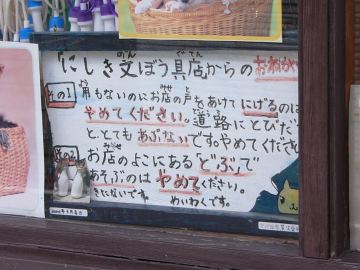 のん　ぐ てん
「にしき文ぼう具店からのおねがい
その1
用もないのにお店の戸をあけてにげるのは
やめてください。道路にとびだ
ととてもあぶないです。やめてくださ
その2
お店のよこにある"どぶ"で
あそぶのはやめてください。
きたないです。 めいわくです。